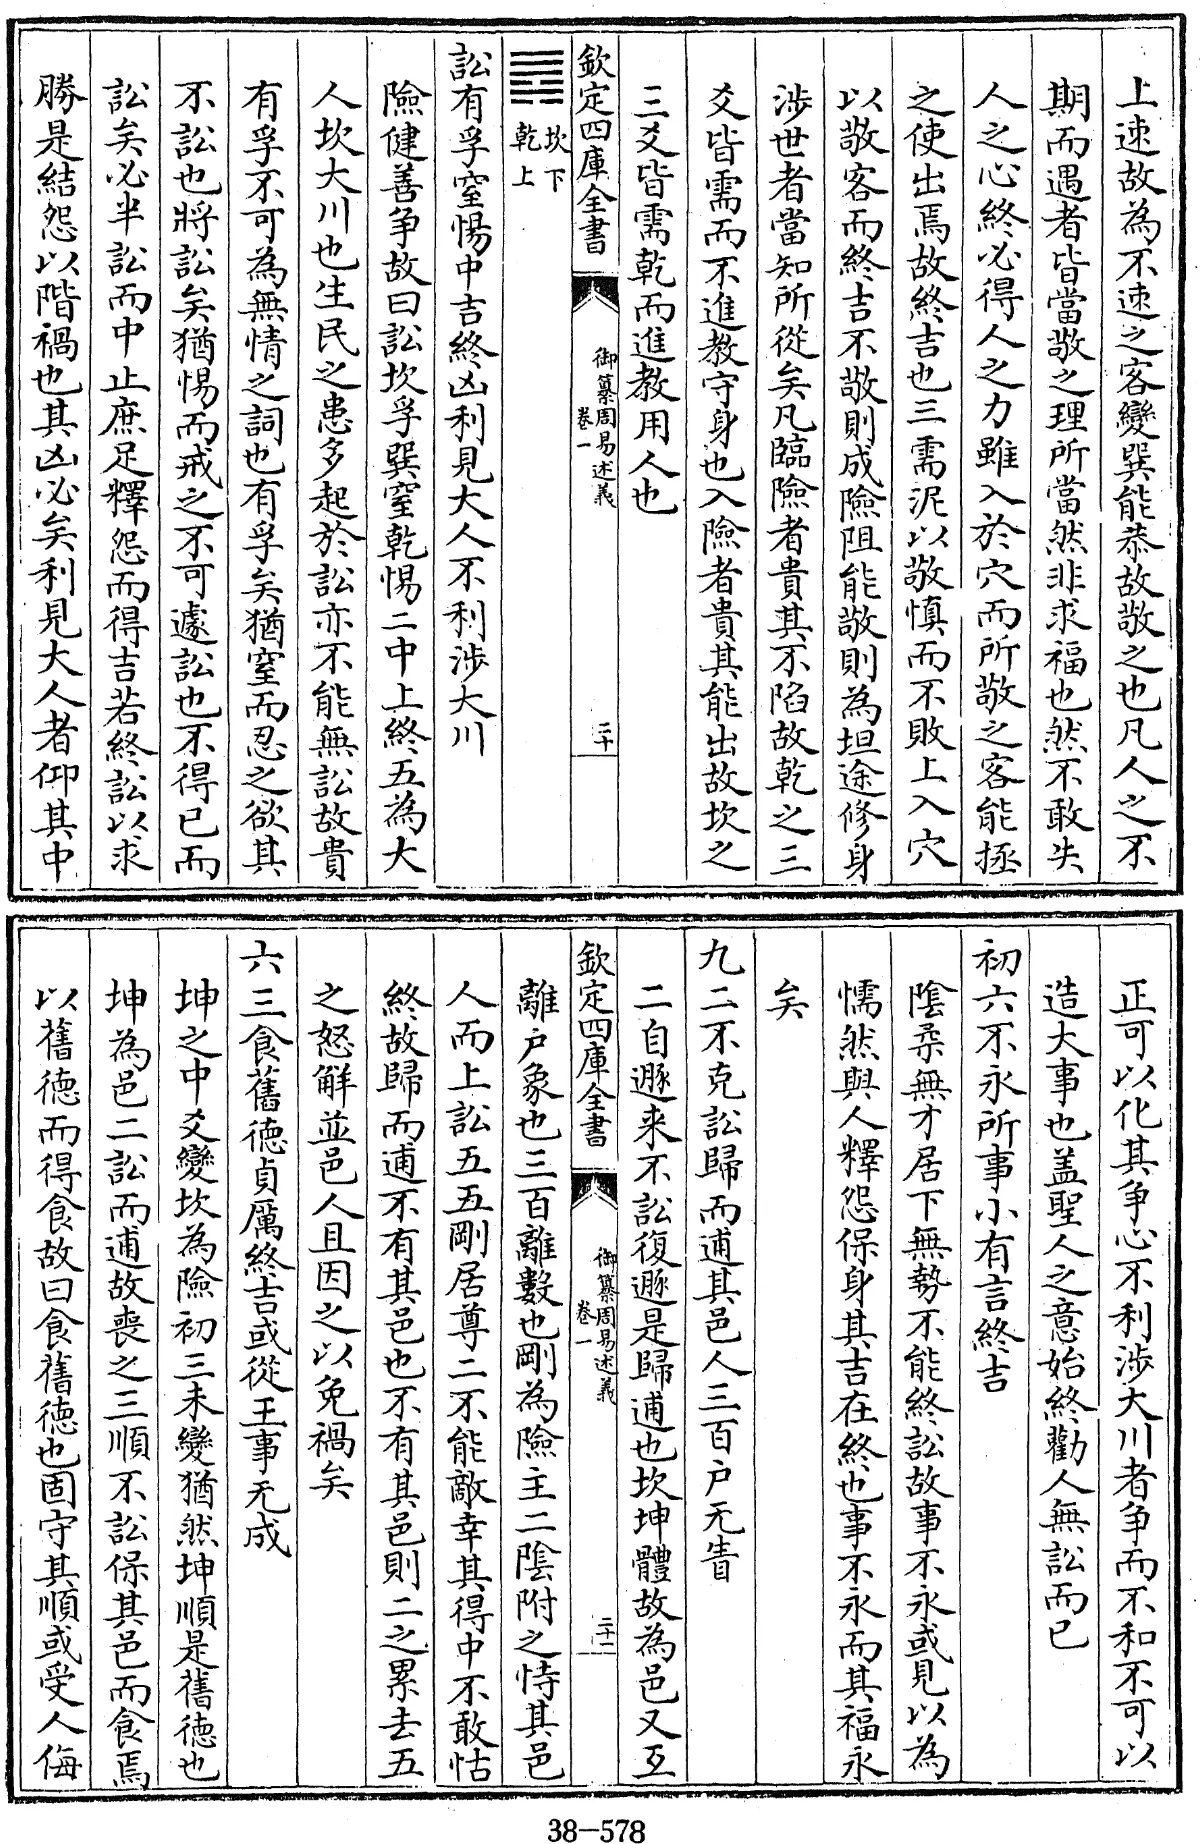 上速故為不速之客變巽能恭故敬之也凡人之不
期而遇者皆當敬之理所當然非求福也然不敢失
人之心終必得人之力雖入於穴而所敬之客能拯
之使出焉故終吉也三需泥以敬慎而不敗上入穴
以敬客而終吉不敬則成險阻能敬則為坦途修身
涉世者當知所從矣凡臨險者貴其不陷故乾之三
爻皆需而不進教守身也入險者貴其能出故坎之
三爻皆需乾而進教用人也
欽定四庫全書
御纂周易述義
卷一
二十
坎下
乾上
訟有孚窒惕中吉終凶利見大人不利涉大川
險健善爭故曰訟坎孚巽窒乾惕二中上終五為大
人坎大川也生民之患多起於訟亦不能無訟故貴
有孚不可為無情之詞也有孚矣猶窒而忍之欲其
不訟也將訟矣猶惕而戒之不可遽訟也不得已而
訟矣必半訟而中止庶足釋怨而得吉若終訟以求
勝是結怨以階禍也其凶必矣利見大人者仰其中
正可以化其爭心不利涉大川者爭而不和不可以
造大事也盖聖人之意始終勸人無訟而已
初六不永所事小有言終吉
陰柔無才居下無勢不能終訟故事不永或見以為
懦然與人釋怨保身其吉在終也事不永而其福永
矣
九二不克訟歸而逋其邑人三百户无眚
二自遯来不訟復遯是歸逋也坎坤體故為邑又互
欽定四庫全書
御纂周易述義
卷一
二十一
離户象也三百離數也剛為險主二陰附之恃其邑
人而上訟五五剛居尊二不能敵幸其得中不敢怙
終故歸而逋不有其邑也不有其邑則二之累去五
之怒解並邑人且因之以免禍矣
六三食舊德貞厲終吉或從王事无成
坤之中爻變坎為險初三未變猶然坤順是舊德也
坤為邑二訟而逋故喪之三順不訟保其邑而食焉
以舊德而得食故曰食舊德也固守其順或受人侮
38-578